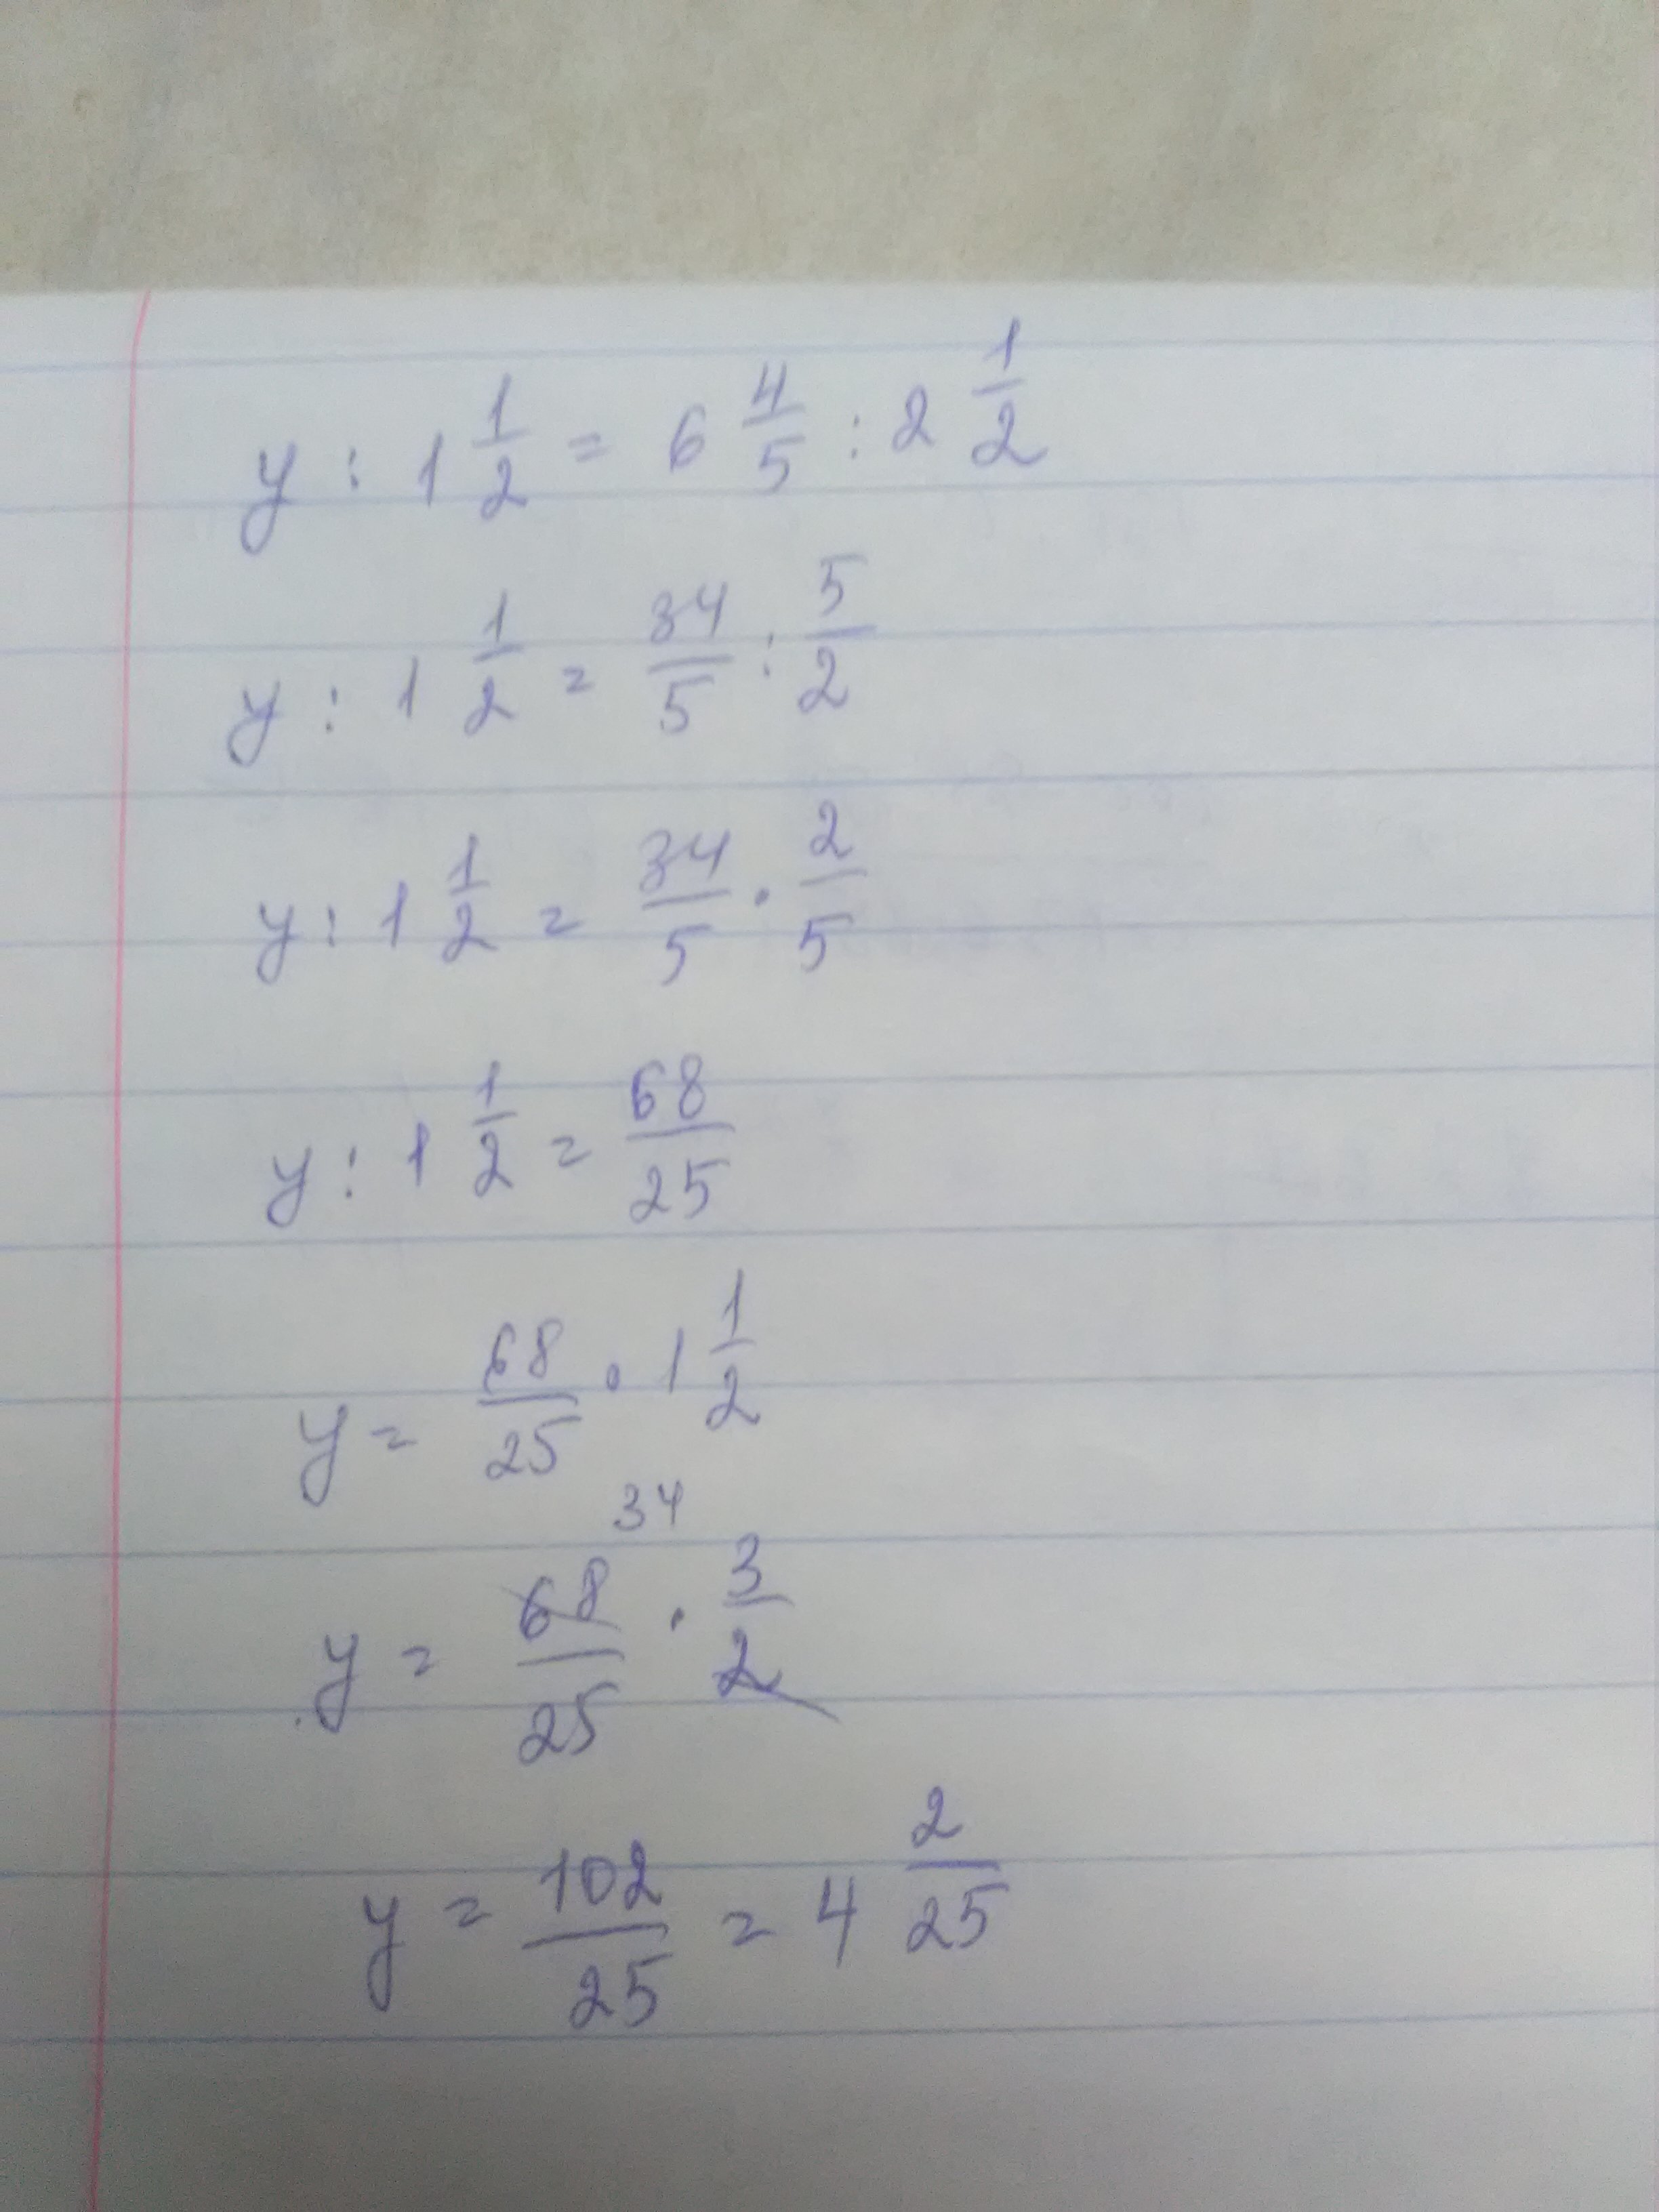 y : 1 1/2 = 6 4/5 : 2 1/2
y : 1 1/2 = 34/5 : 5/2
y : 1 1/2 = 34/5 · 2/5
y : 1 1/2 = 68/25
y = 68/25 · 1 1/2
34
y = 68/25 · 3/2
y = 102/25 = 4 2/25